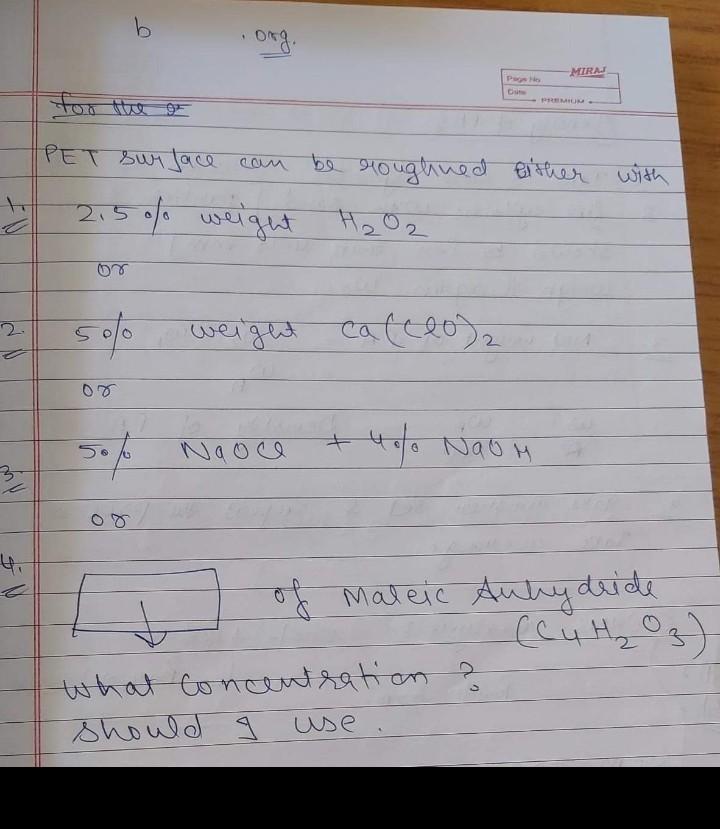 b . org.
MIRAJ
Page No
Date
PREMIUM
for the
PET surface can be roughned either with
1. 2.5% weight H₂O₂
or
2. 5% weight Ca(ClO)₂
or
3. 5% NaOCl + 4% NaOH
or
4. of Maleic Anhydride
(C4H₂O₃)
What concentration ?
should I use.